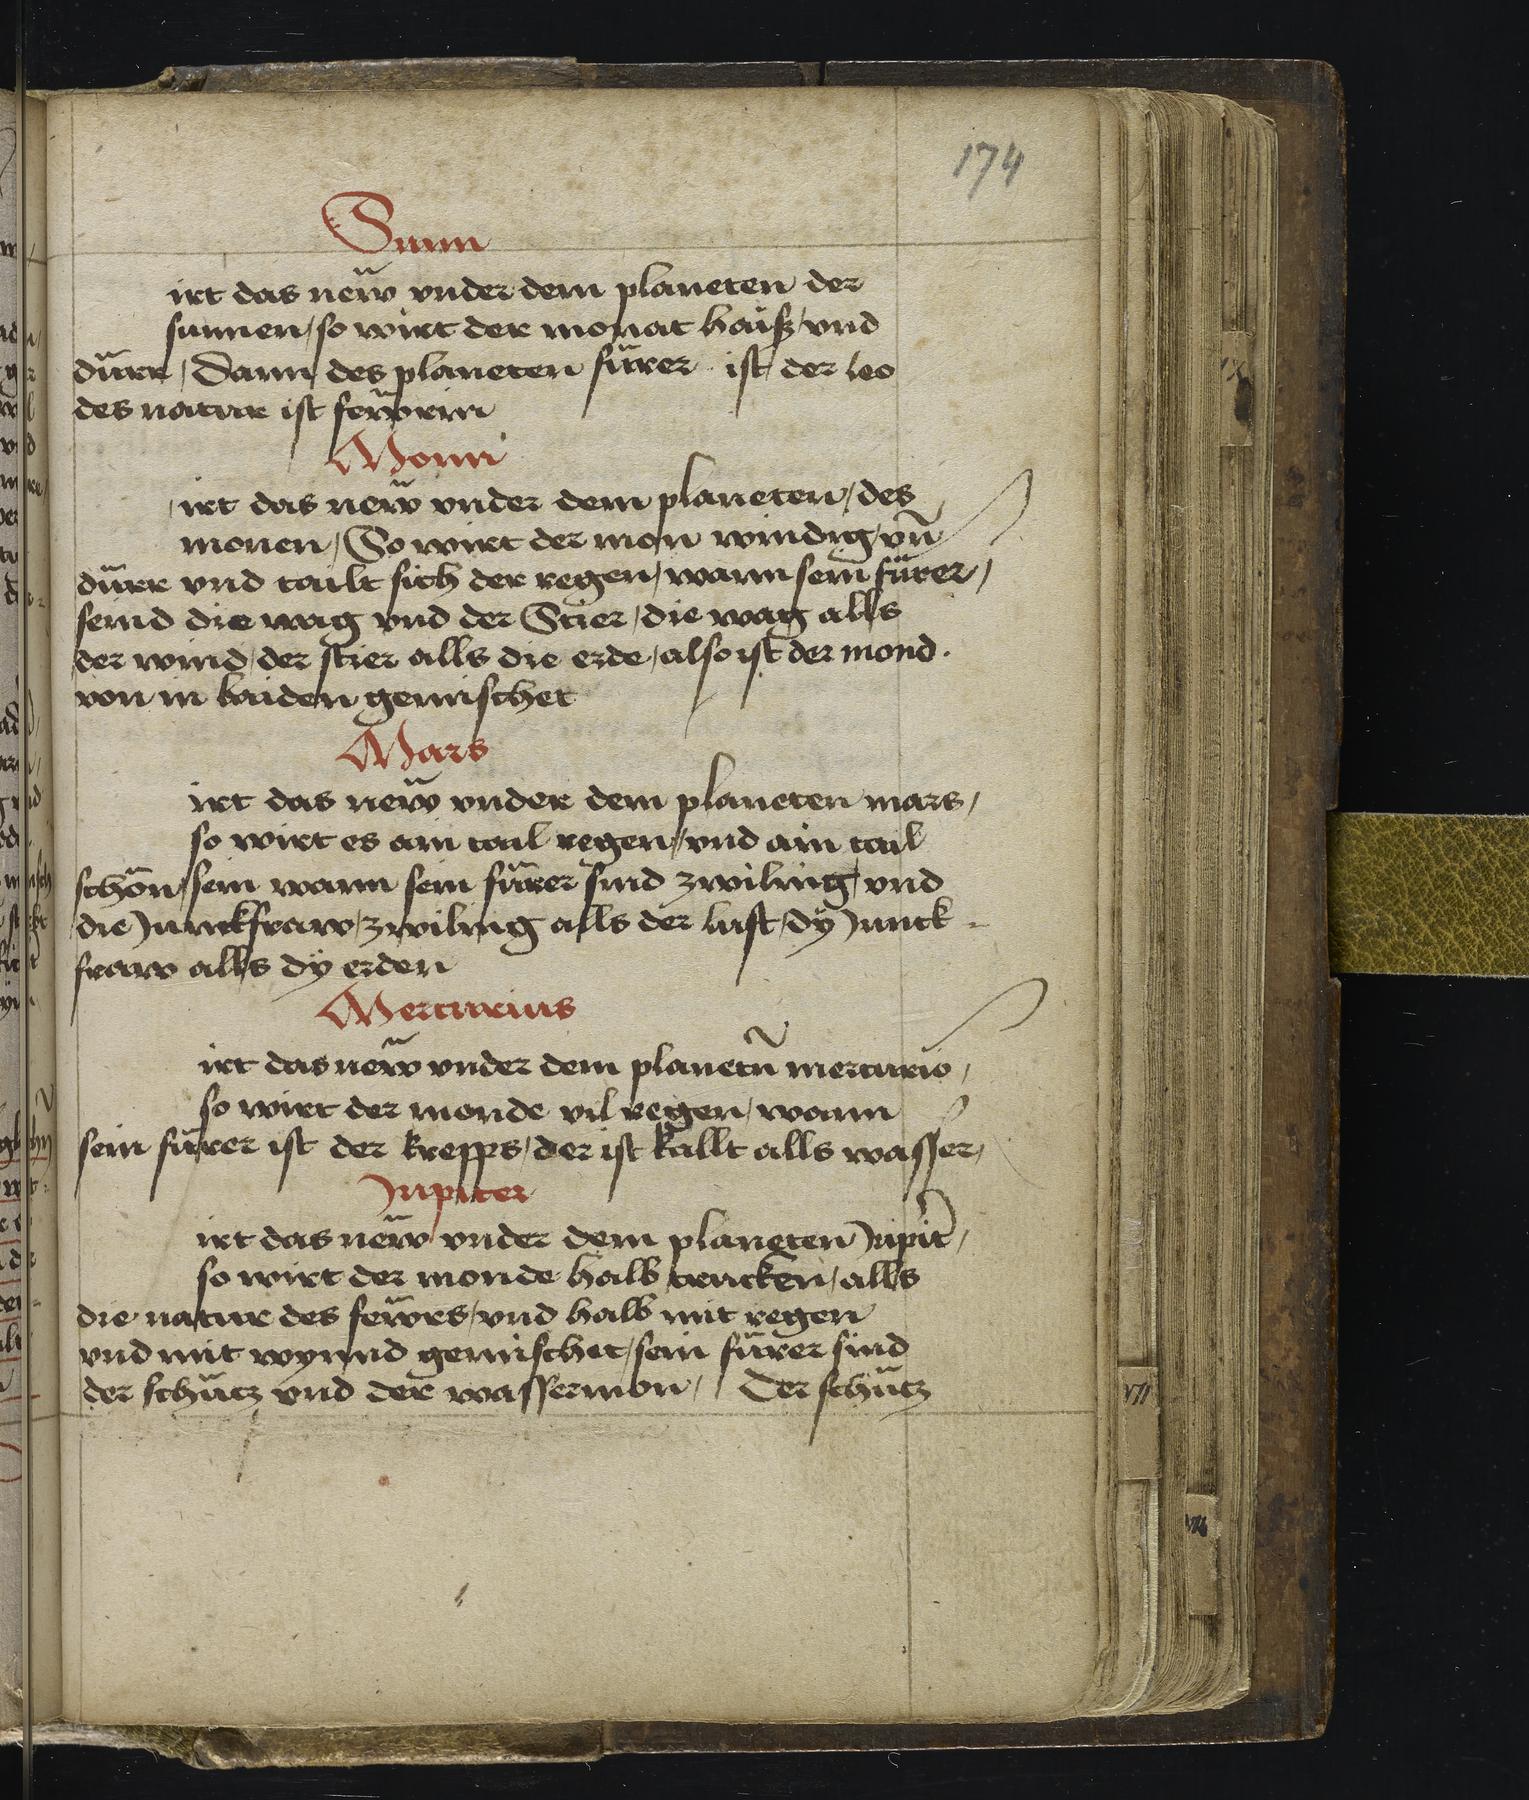 174
Sunn
irt das new̃ vnder dem planeten der
sunnen / so wirt der monat haiß / vnd
dürr / Dann des planeten fürer ist der leo
des natur ist fewrin
Monn
irt das new̃ vnder dem planeten / des
monen / So wirt der mon windig / vñ
dürr vnd tailt sich der regen / wann sein fürer /
seind die wag vnd der Stier / die wag alls
der wind / der stier alls die erde / also ist der mond .
von in baiden gemischet
Mars
irt das new̃ vnder dem planeten mars /
so wirt es ain tail regen / vnd ain tail
schön / sein wann sein fürer sind zwiling / vnd
die Junckfraw / zwiling alls der luft / dÿ Junck =
fraw alls dÿ erden
Mercurius
irt das new̃ vnder dem planetñ mercurio /
so wirt der monde vil regen / wann
sein fürer ist der krepps / der ist kallt alls wasser /
Jupiter
irt das new̃ vnder dem planeten Jupit̃ /
so wirt der monde halb trucken / alls
die natur des fewrs / vnd halb mit regen
vnd mit wynnd gemischet / sein fürer sind
der schütz vnd der wassermon / Der schütz
VII